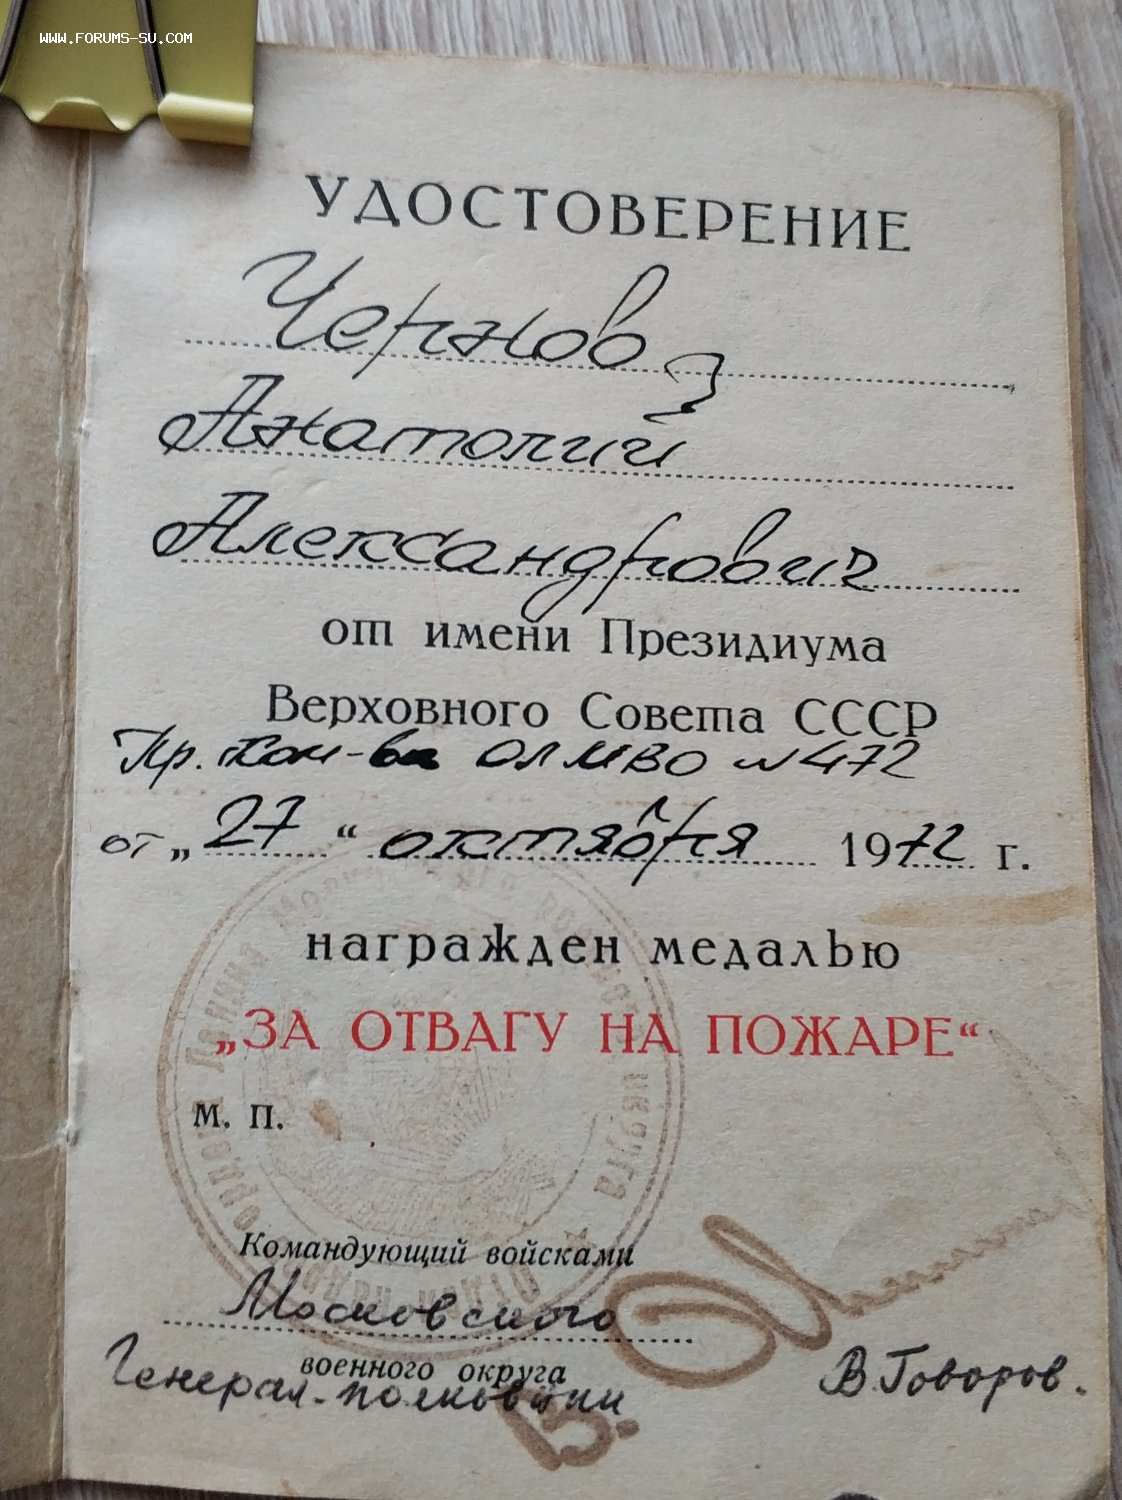 WWW.FORUMS-SU.COM
УДОСТОВЕРЕНИЕ
Чернов
Анатолий
Александрович
от имени Президиума
Верховного Совета СССР
Пр. ком-ва ОЛМВО №472
от „27“ октября 1972 г.
награжден медалью
„ЗА ОТВАГУ НА ПОЖАРЕ“
М. П.
Командующий войсками
Московского
военного округа
Генерал-полковник В. Говоров.